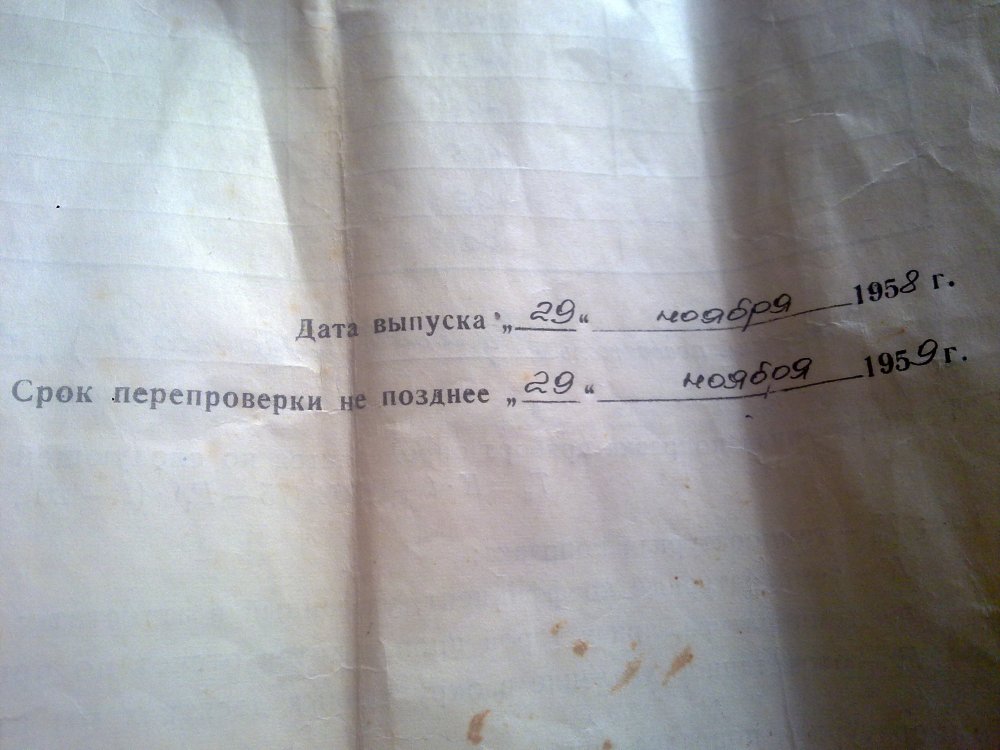 Дата выпуска „29“ ноября 1958 г.
Срок перепроверки не позднее „29“ ноября 1959 г.